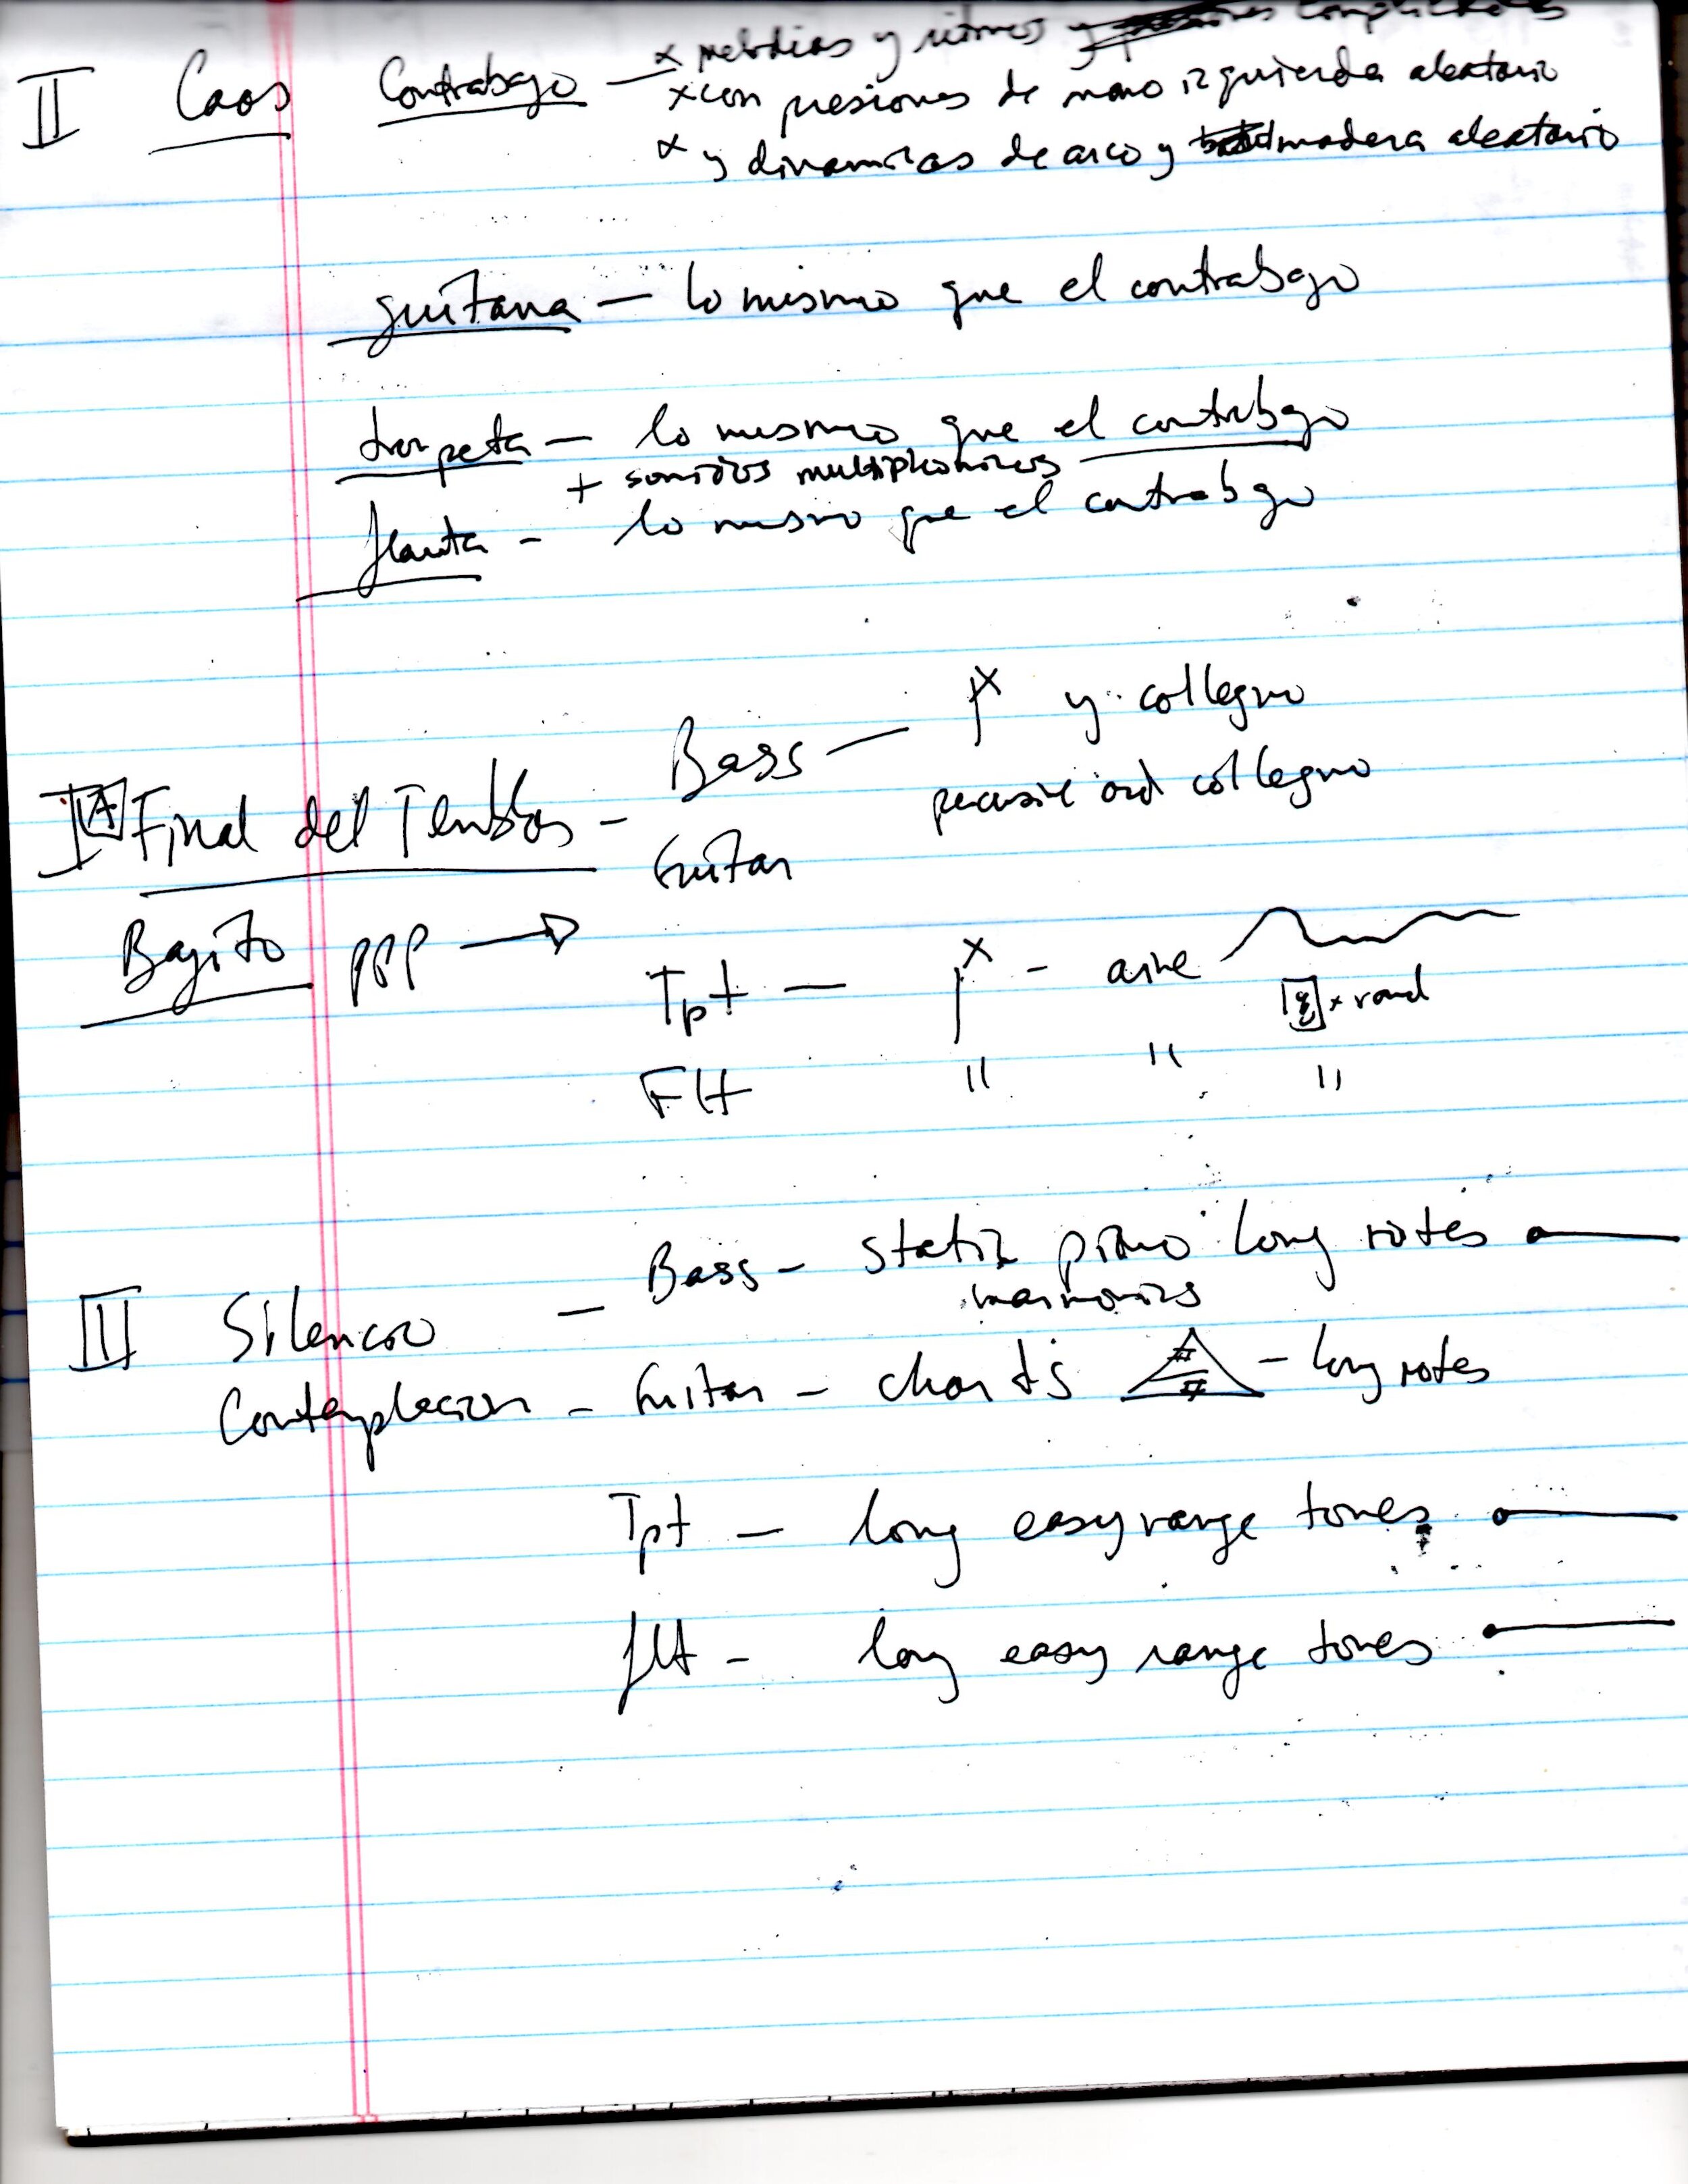 x melodias y ritmos y complicados
II Caos Contrabajo — x con presiones de mano izquierda aleatorio
x y dinamicas de arco y madera aleatorio
guitarra — lo mismo que el contrabajo
trompeta — lo mismo que el contrabajo
+ sonidos multiphonicos
flauta - lo mismo que el contrabajo
Bass — y collegno
ord collegno
IA Final del -
Guitar
Bajito ppp →
Tpt — x - aire
x rand
Flt " " "
Bass - static piano long notes
harmonics
III Silencio —
Contemplacion - Guitar - chords # # - long notes
Tpt — long easy range tones
flt - long easy range tones